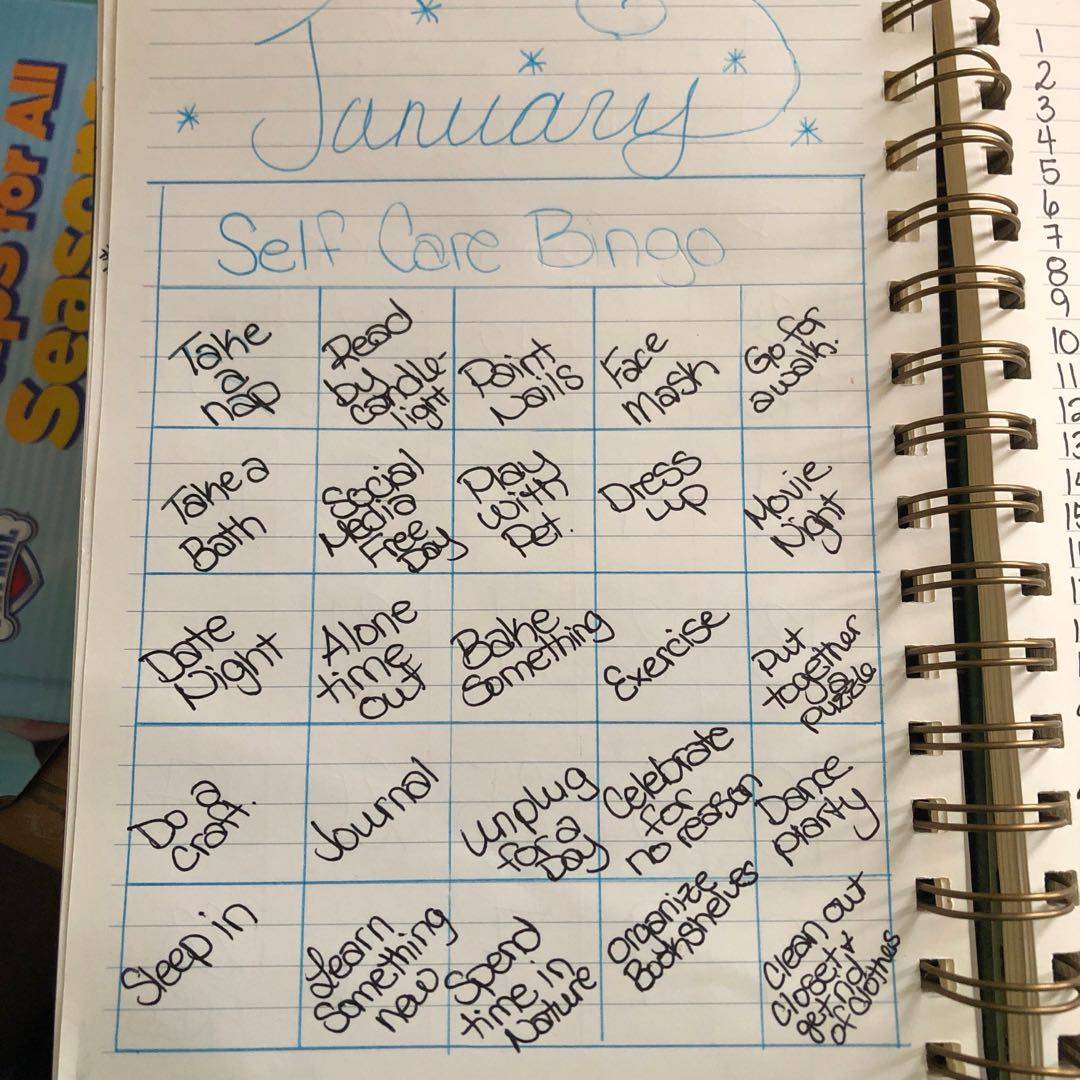 January
Self Care Bingo
Take
a
nap
Read
by
candle-
light
Paint
Nails
Face
Mask
Go for
a walk.
Take a
Bath
Social
Media
Free
Day
Play
with
Pet.
Dress
up
Movie
Night
Date
Night
Alone
time
out
Bake
Something
Exercise
Put
together
a
puzzle
Do a
craft.
Journal
Unplug
for a
Day
Celebrate
for
no reason
Dance
party
Sleep in
Learn
Something
new
Spend
time in
Nature
Organize
Bookshelves
Clean out
closet +
get rid
of clothes
for All
Seasons
1
2
3
4
5
6
7
8
9
10
11
12
13